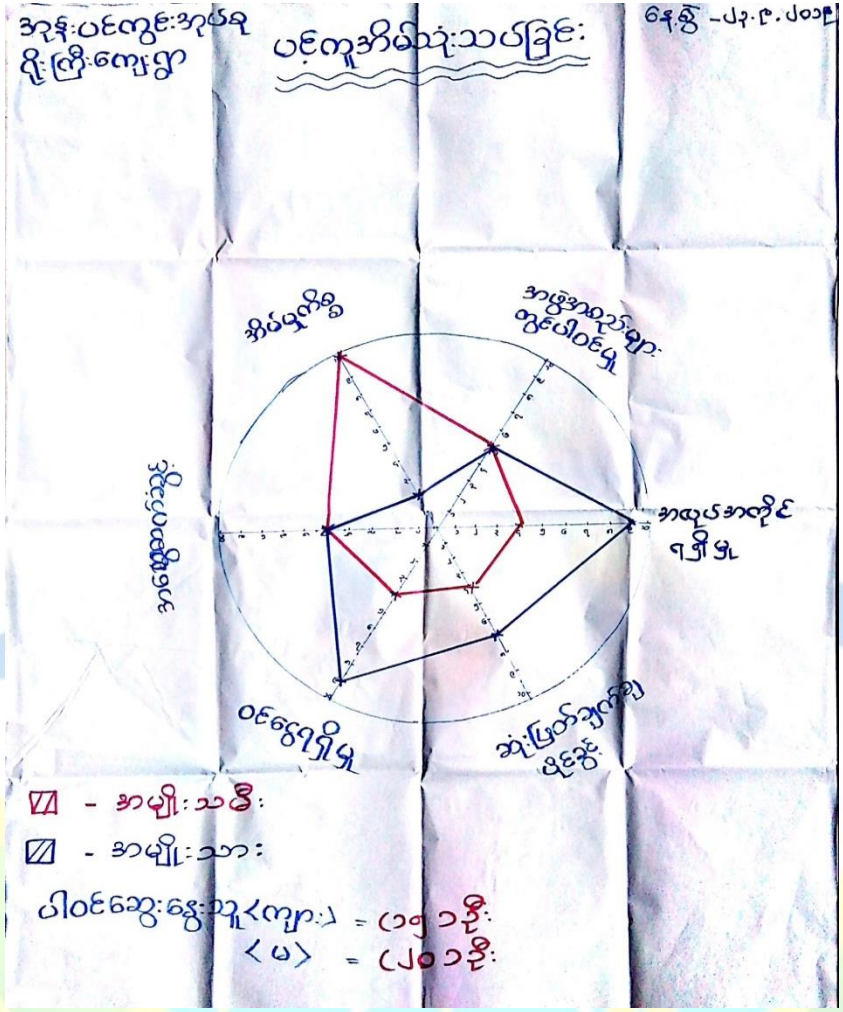 အုန်းပင်ကွင်းအုပ်စု
ရိုးကြီးကျေးရွာ
ပင့်ကူအိမ်သုံးသပ်ခြင်း
နေ့စွဲ -၂၃.၉.၂၀၁၉
အိမ်မှုကိစ္စ
အဖွဲ့အစည်းများ
တွင်ပါဝင်မှု
အလုပ်အကိုင်
ရရှိမှု
ဆုံးဖြတ်ချက်ချ
ပိုင်ခွင့်
ဝင်ငွေရရှိမှု
- အမျိုးသမီး
- အမျိုးသား
ပါဝင်ဆွေးနွေးသူ <ကျား> = (၁၅)ဦး
<မ> = (၂၀)ဦး